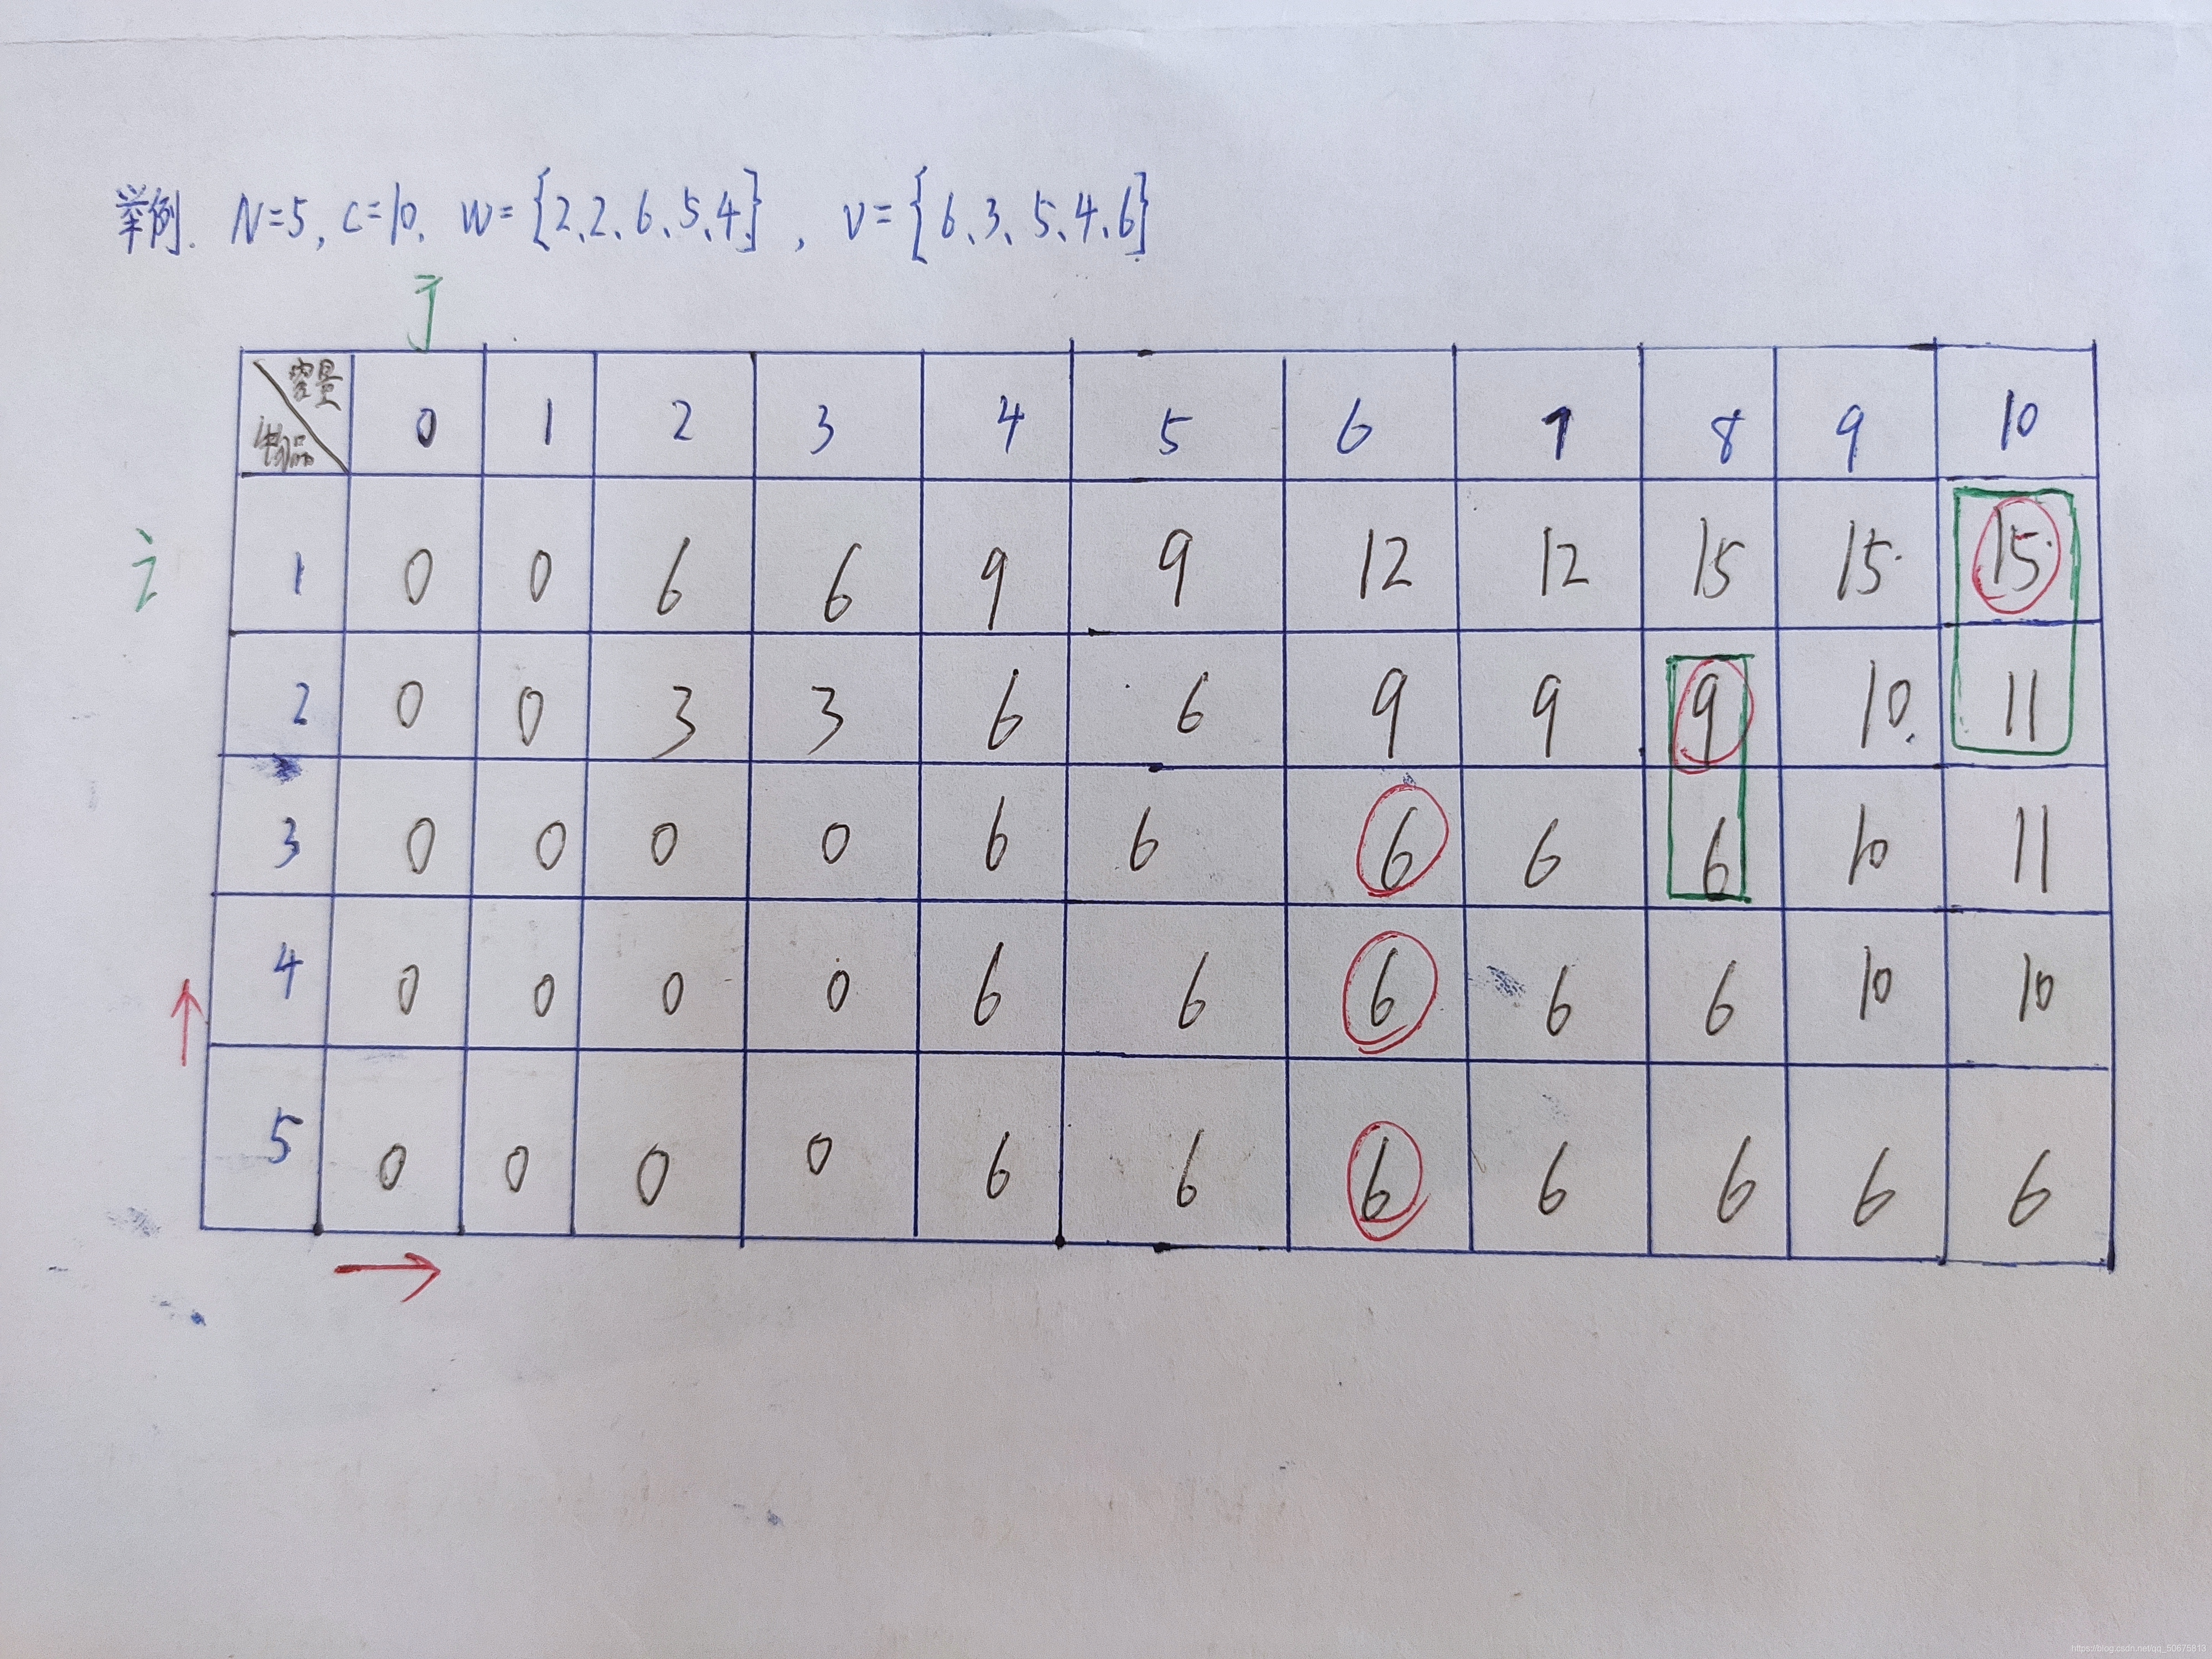 举例. N=5, C=10, W={2、2、6、5、4}, V={6、3、5、4、6}
j
容量
物品 0 1 2 3 4 5 6 7 8 9 10
i 1 0 0 6 6 9 9 12 12 15 15 15
2 0 0 3 3 6 6 9 9 9 10 11
3 0 0 0 0 6 6 6 6 6 10 11
4 0 0 0 0 6 6 6 6 6 10 10
5 0 0 0 0 6 6 6 6 6 6 6
https://blog.csdn.net/qq_50675813